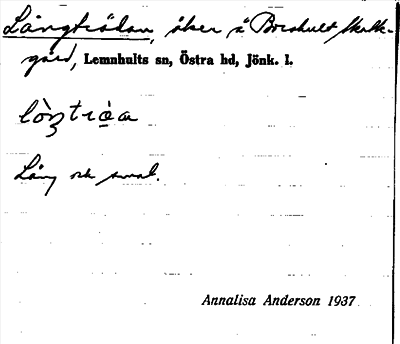 Långträdan, åker å Boshult Skatte-
gård, Lemnhults sn, Östra hd, Jönk. l.
Lång och smal.
Annalisa Anderson 1937